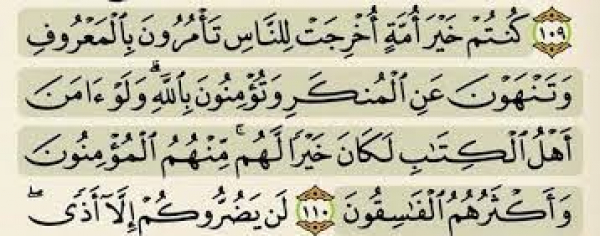 ١٠٩ كُنتُمۡ خَيۡرَ أُمَّةٍ أُخۡرِجَتۡ لِلنَّاسِ تَأۡمُرُونَ بِٱلۡمَعۡرُوفِ
وَتَنۡهَوۡنَ عَنِ ٱلۡمُنكَرِ وَتُؤۡمِنُونَ بِٱللَّهِۗ وَلَوۡ ءَامَنَ
أَهۡلُ ٱلۡكِتَٰبِ لَكَانَ خَيۡرٗا لَّهُمۚ مِّنۡهُمُ ٱلۡمُؤۡمِنُونَ
وَأَكۡثَرُهُمُ ٱلۡفَٰسِقُونَ ١١٠ لَن يَضُرُّوكُمۡ إِلَّآ أَذٗىۖ